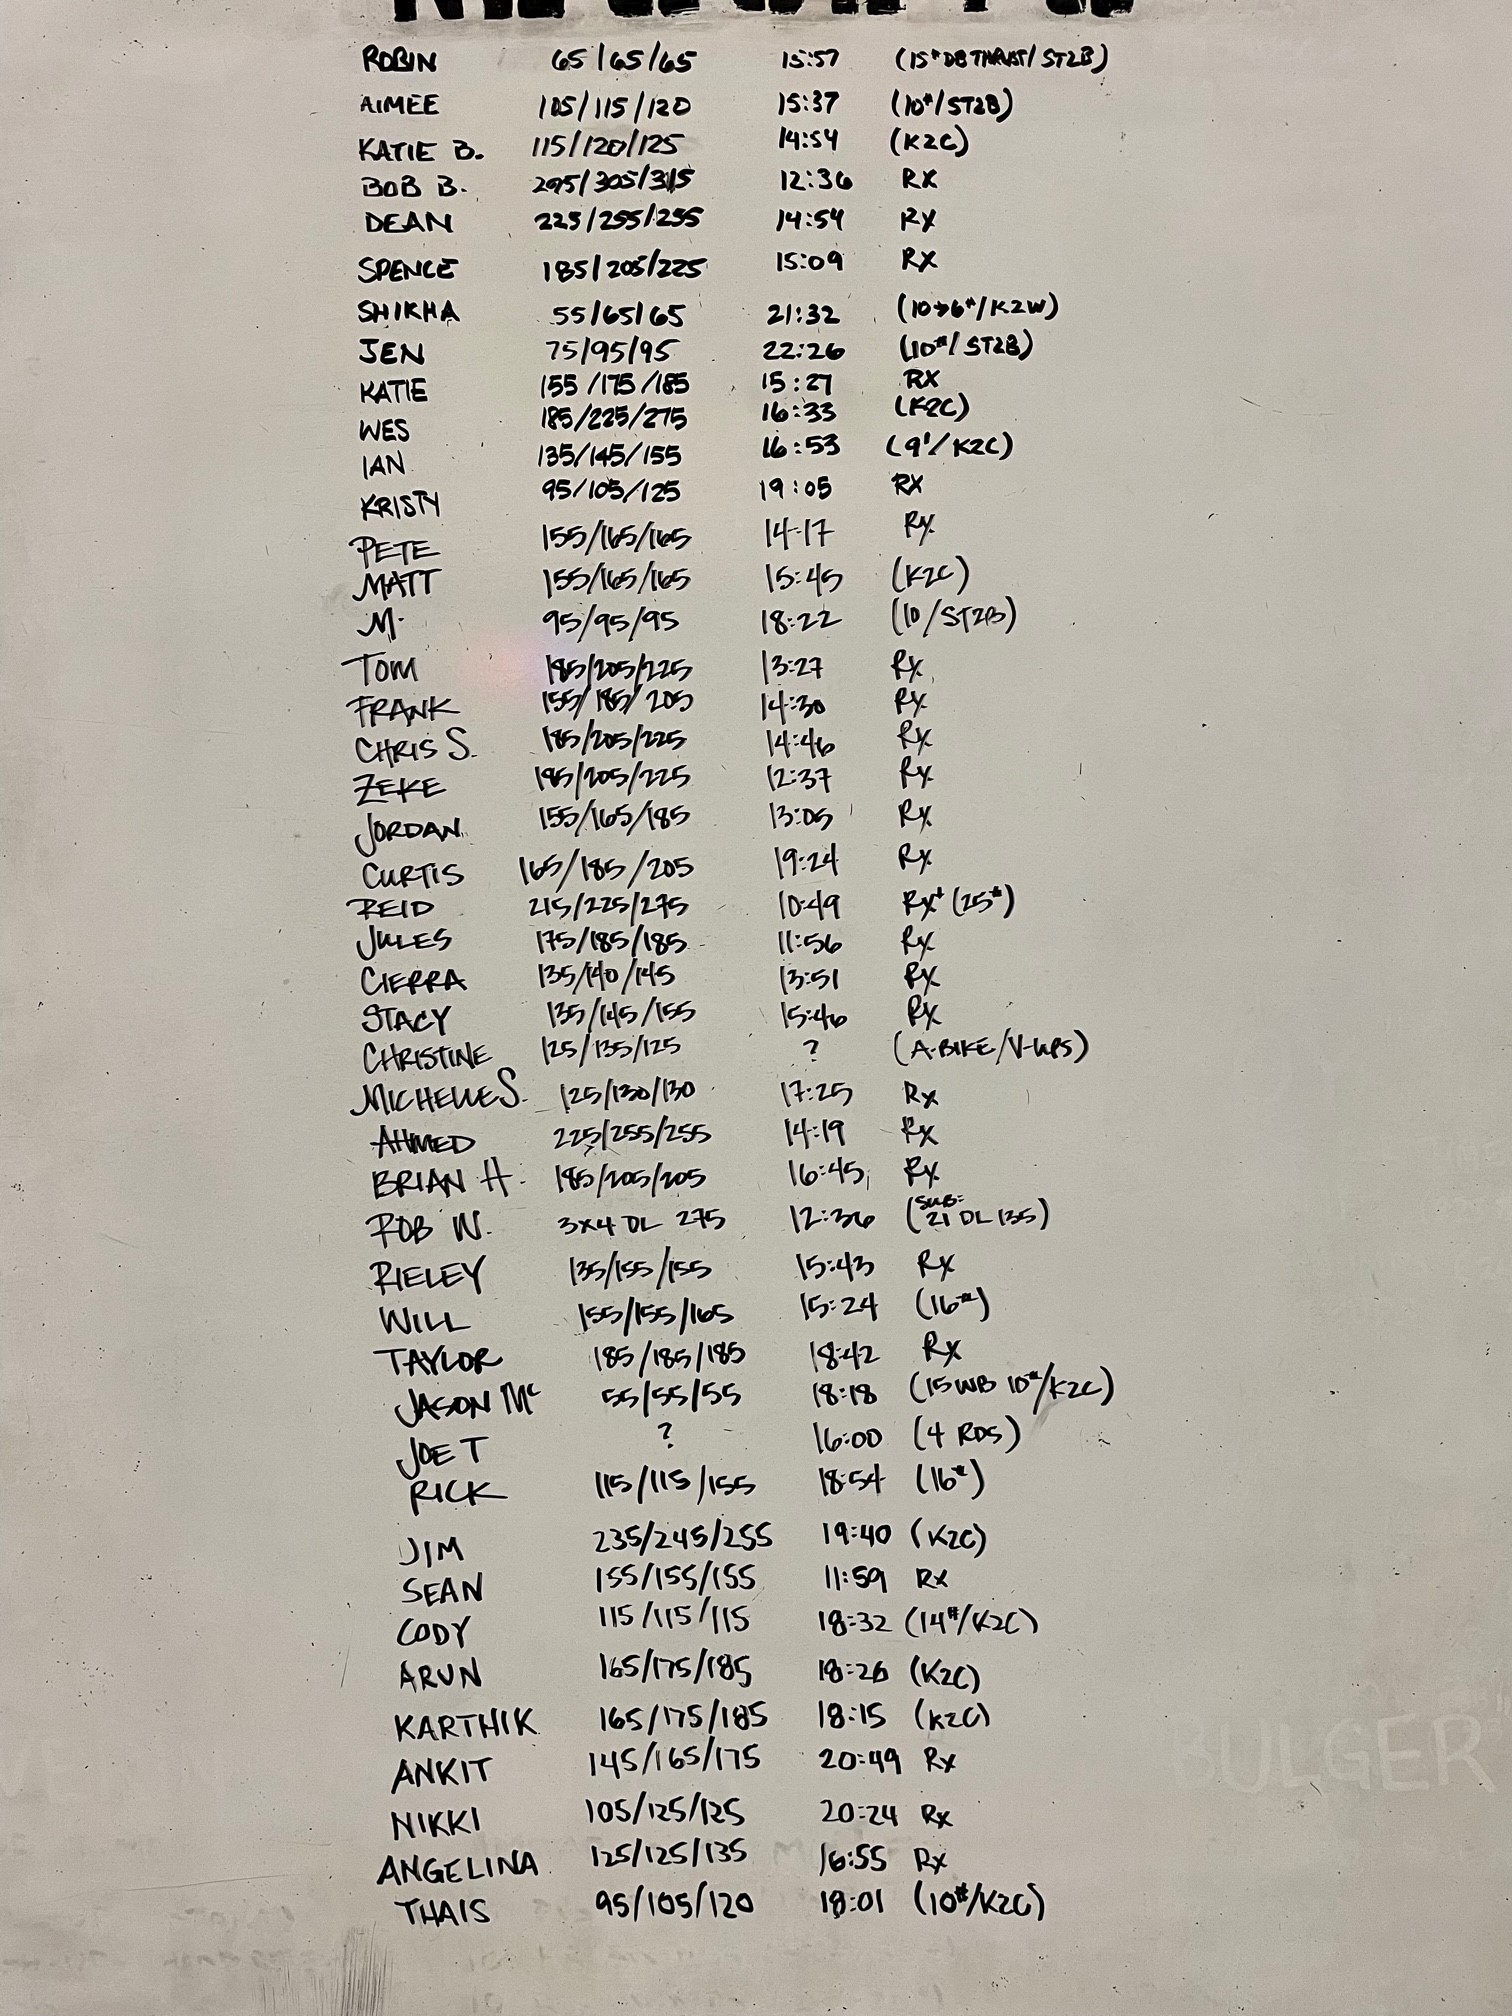 ROBIN 65/65/65 15:57 (15# DB THRUST/ST2B)
AIMEE 105/115/120 15:37 (10#/ST2B)
KATIE B. 115/120/125 14:54 (K2C)
BOB B. 295/305/315 12:36 RX
DEAN 225/255/255 14:54 RX
SPENCE 185/205/225 15:09 RX
SHIKHA 55/65/65 21:32 (10→6#/K2W)
JEN 75/95/95 22:26 (10#/ST2B)
KATIE 155/175/185 15:27 RX
WES 185/225/275 16:33 (K2C)
IAN 135/145/155 16:53 (9'/K2C)
KRISTY 95/105/125 19:05 RX
PETE 155/165/165 14:17 Rx
MATT 155/165/165 15:45 (K2C)
M. 95/95/95 18:22 (10/ST2B)
TOM 185/205/225 13:27 Rx
FRANK 155/185/205 14:30 Rx
CHRIS S. 185/205/225 14:46 Rx
ZEKE 185/205/225 12:37 Rx
JORDAN 155/165/185 13:05 Rx
CURTIS 165/185/205 19:24 Rx
REID 215/225/275 10:49 Rx+ (25#)
JULES 175/185/185 11:56 Rx
CIERRA 135/140/145 13:51 Rx
STACY 135/145/155 15:46 Rx
CHRISTINE 125/135/125 ? (A-BIKE/V-UPS)
MICHELLE S. 125/130/130 17:25 Rx
AHMED 225/255/255 14:19 Rx
BRIAN H. 185/205/205 16:45 Rx
ROB W. 3x4 DL 275 12:36 (SUB: 21 DL 135)
RIELEY 135/155/155 15:43 Rx
WILL 155/155/165 15:24 (16#)
TAYLOR 185/185/185 18:42 Rx
JASON Mc 55/55/55 18:18 (15 WB 10#/K2C)
JOE T ? 16:00 (4 RDS)
RICK 115/115/155 18:54 (16#)
JIM 235/245/255 19:40 (K2C)
SEAN 155/155/155 11:59 Rx
CODY 115/115/115 18:32 (14#/K2C)
ARUN 165/175/185 18:26 (K2C)
KARTHIK 165/175/185 18:15 (K2C)
BULGER
ANKIT 145/165/175 20:49 Rx
NIKKI 105/125/125 20:24 Rx
ANGELINA 125/125/135 16:55 Rx
THAIS 95/105/120 18:01 (10#/K2C)